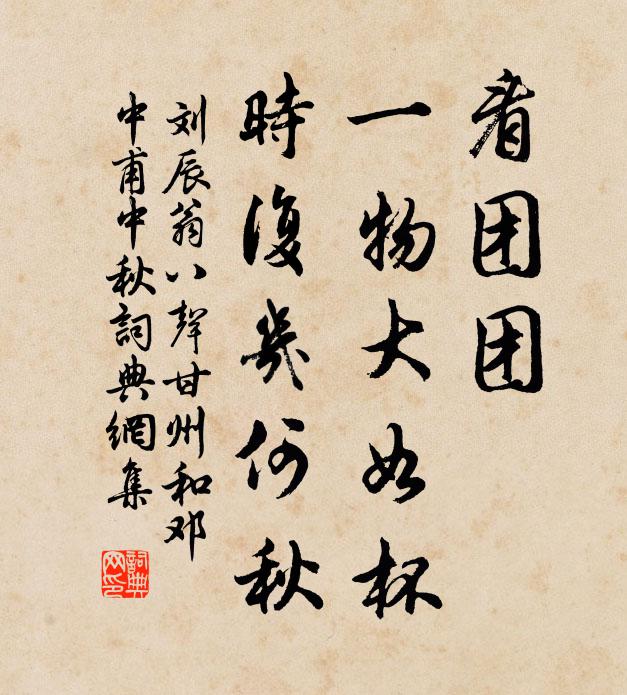 看团团
一物大如杯
時復幾何秋
刘辰翁八聲甘州和邓
中甫中秋詞典網集
詞典
网印